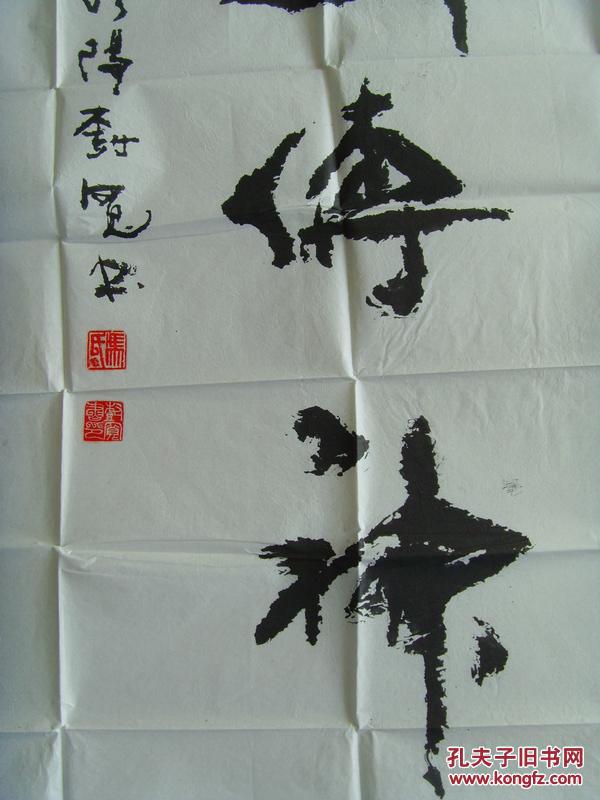 傳神
陽樹寬书
馬氏
孔夫子旧书网
www.kongfz.com